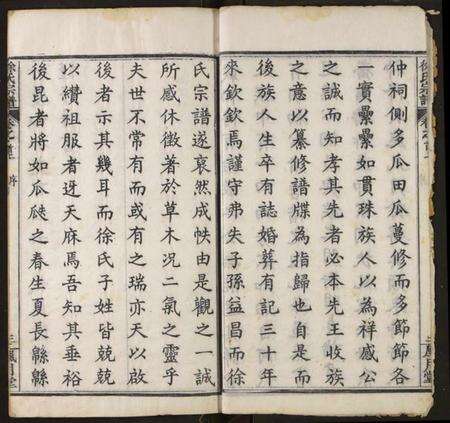 仲祠側多瓜田瓜蔓修而多節節各
一實纍纍如貫珠族人以為祥感公
之誠而知孝其先者必本先王收族
之意以纂修譜牒為指歸也自是而
後族人生卒有誌婚葬有記三十年
來欽欽焉謹守弗失子孫益昌而徐
氏宗譜遂裒然成帙由是觀之一誠
所感休徵著於草木況二氣之靈乎
夫世不常有而或有之瑞亦天以啟
後者示其幾耳而徐氏子姓皆兢兢
以纘祖服者迓天庥焉吾知其垂裕
後昆者將如瓜瓞之春生夏長緜緜
徐氏宗譜
卷之首
序